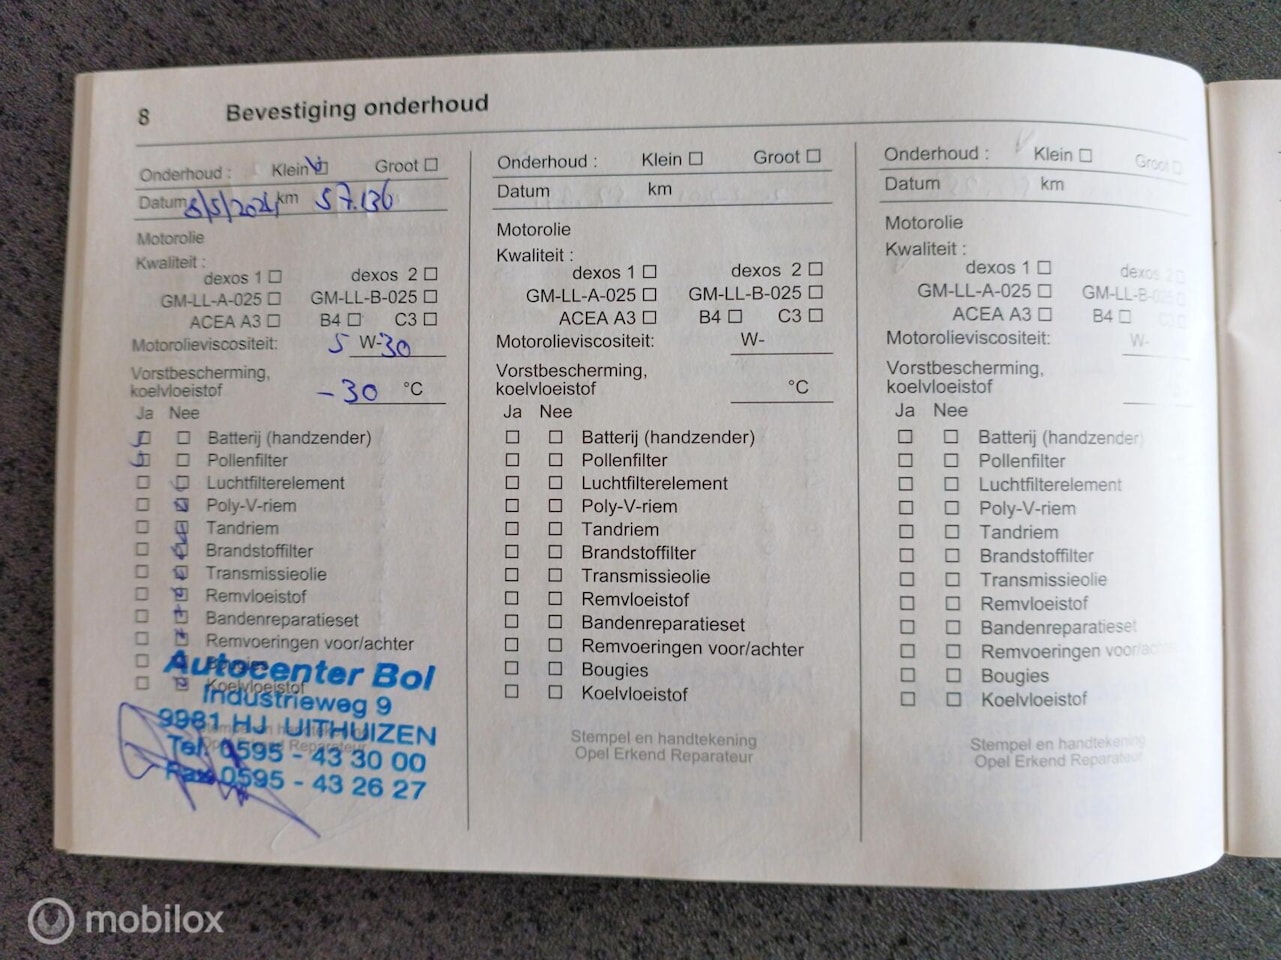 8 Bevestiging onderhoud
Onderhoud : Klein Groot
Datum km 57.136
Motorolie
Kwaliteit :
dexos 1 dexos 2
GM-LL-A-025 GM-LL-B-025
ACEA A3 B4 C3
Motorolieviscositeit: 5 W-30
Vorstbescherming,
koelvloeistof -30 °C
Ja Nee
Batterij (handzender)
Pollenfilter
Luchtfilterelement
Poly-V-riem
Tandriem
Brandstoffilter
Transmissieolie
Remvloeistof
Bandenreparatieset
Remvoeringen voor/achter
Bougies
Koelvloeistof
Autocenter Bol
Industrieweg 9
9981 HJ UITHUIZEN
Tel. 0595 - 43 30 00
Fax 0595 - 43 26 27
Stempel en handtekening
Opel Erkend Reparateur
Onderhoud : Klein Groot
Datum km
Motorolie
Kwaliteit :
dexos 1 dexos 2
GM-LL-A-025 GM-LL-B-025
ACEA A3 B4 C3
Motorolieviscositeit: W-
Vorstbescherming,
koelvloeistof °C
Ja Nee
Batterij (handzender)
Pollenfilter
Luchtfilterelement
Poly-V-riem
Tandriem
Brandstoffilter
Transmissieolie
Remvloeistof
Bandenreparatieset
Remvoeringen voor/achter
Bougies
Koelvloeistof
Stempel en handtekening
Opel Erkend Reparateur
Onderhoud : Klein Groot
Datum km
Motorolie
Kwaliteit :
dexos 1 dexos 2
GM-LL-A-025 GM-LL-B-025
ACEA A3 B4 C3
Motorolieviscositeit: W-
Vorstbescherming,
koelvloeistof
Ja Nee
Batterij (handzender)
Pollenfilter
Luchtfilterelement
Poly-V-riem
Tandriem
Brandstoffilter
Transmissieolie
Remvloeistof
Bandenreparatieset
Remvoeringen voor/achter
Bougies
Koelvloeistof
Stempel en handtekening
Opel Erkend Reparateur
mobilox